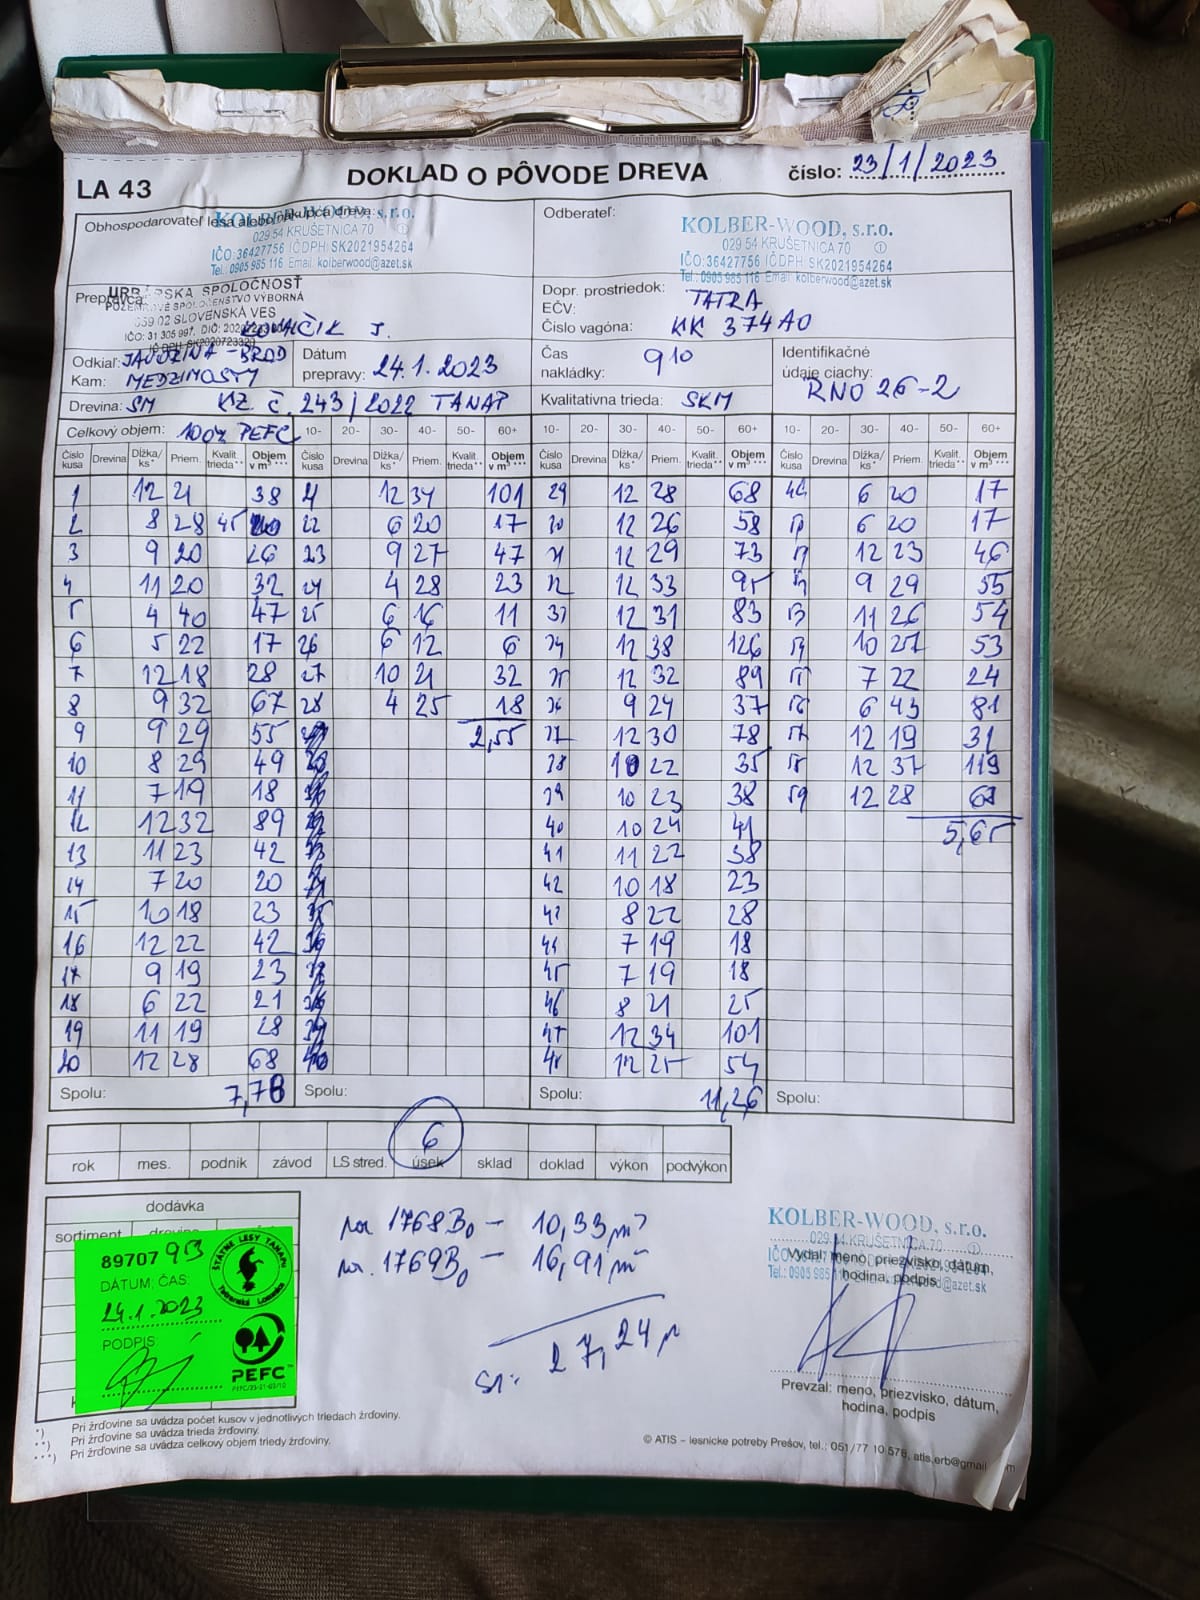 LA 43
DOKLAD O PÔVODE DREVA
číslo: 23/1/2023
Obhospodarovateľ lesa alebo nákupca dreva:
KOLBER-WOOD, s.r.o.
029 54 KRUŠETNICA 70 ①
IČO:36427756 IČDPH: SK2021954264
Tel.: 0905 985 116 Email: kolberwood@azet.sk
Odberateľ:
KOLBER-WOOD, s.r.o.
029 54 KRUŠETNICA 70 ①
IČO:36427756 IČDPH: SK2021954264
Tel.: 0905 985 116 Email: kolberwood@azet.sk
Prepravca:
URBÁRSKA SPOLOČNOSŤ
POZEMKOVÉ SPOLOČENSTVO VÝBORNÁ
059 02 SLOVENSKÁ VES
IČO: 31 305 997, DIČ:
IČ DPH: SK2020723320
J.
Dopr. prostriedok: TATRA
EČV:
Číslo vagóna: KK 374AO
Odkiaľ: JAVORINA - BROD
Kam: MEDZIMOSTY
Dátum prepravy: 24.1.2023
Čas nakládky: 9 10
Identifikačné údaje ciachy: RNO 26-2
Drevina: SM KZ. č. 243/2022 TANAP
Kvalitatívna trieda: SKM
Celkový objem: 100% PEFC
10- 20- 30- 40- 50- 60+ 10- 20- 30- 40- 50- 60+
Číslo kusa Drevina Dĺžka/ks* Priem. Kvalit. trieda** Objem v m³*** Číslo kusa Drevina Dĺžka/ks* Priem. Kvalit. trieda** Objem v m³*** Číslo kusa Drevina Dĺžka/ks* Priem. Kvalit. trieda** Objem v m³*** Číslo kusa Drevina Dĺžka/ks* Priem. Kvalit. trieda** Objem v m³***
1 12 21 38 12 34 101 29 12 28 68 6 20 17
2 8 28 45 22 6 20 17 30 12 26 58 6 20 17
3 9 20 26 23 9 27 47 31 12 29 73 12 23 46
4 11 20 32 24 4 28 23 32 12 33 95 9 29 55
5 4 40 47 25 6 16 11 33 12 31 83 53 11 26 54
6 5 22 17 26 6 12 6 34 12 38 126 10 27 53
7 12 18 28 27 10 21 32 35 12 32 89 55 7 22 24
8 9 32 67 28 4 25 18 36 9 24 37 56 6 43 81
9 9 29 55 2,55 37 12 30 78 57 12 19 31
10 8 29 49 38 10 22 35 58 12 37 119
11 7 19 18 39 10 23 38 59 12 28 68
12 12 32 89 40 10 24 41 5,65
13 11 23 42 41 11 22 38
14 7 20 20 42 10 18 23
15 10 18 23 43 8 22 28
16 12 22 42 44 7 19 18
17 9 19 23 45 7 19 18
18 6 22 21 46 8 21 25
19 11 19 28 47 12 34 101
20 12 28 68 48 12 25 54
Spolu: 7,78 Spolu: Spolu: 11,26 Spolu:
6
rok mes. podnik závod LS stred. úsek sklad doklad výkon podvýkon
dodávka
sortiment
89707 93
DÁTUM, ČAS:
24.1.2023
PODPIS
ŠTÁTNE LESY TANAPU
Tatranská Lomnica
PEFC™
1768B0 - 10,33 m³
1769B0 - 16,91 m³
27,24
KOLBER-WOOD, s.r.o.
029 54 KRUŠETNICA 70
Vydal: meno, priezvisko, dátum,
hodina, podpis
Prevzal: meno, priezvisko, dátum,
hodina, podpis
*) Pri žrďovine sa uvádza počet kusov v jednotlivých triedach žrďoviny.
**) Pri žrďovine sa uvádza trieda žrďoviny.
***) Pri žrďovine sa uvádza celkový objem triedy žrďoviny.
© ATIS – lesnícke potreby Prešov, tel.: 051/77 10 578,